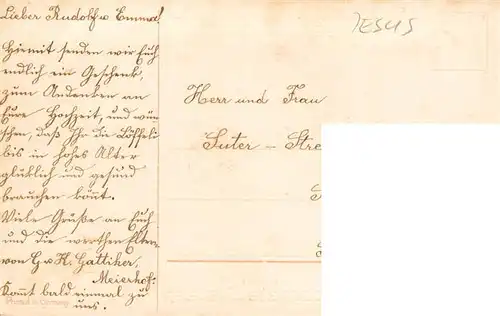 Lieber Rudolf u Emma!
Hiermit senden wir Euch
endlich ein Geschenk,
zum Andenken an
Eure Hochzeit, und wün-
schen, daß Ihr die Löffeli
bis in hohes Alter
glücklich und gesund
brauchen könnt.
Viele Grüße an Euch
und die werthen Eltern
von G u. H. Gattiker,
Meierhof.
Kommt bald einmal zu
uns.
Printed in Germany
JESUS
Herr und Frau
Suter - Stre